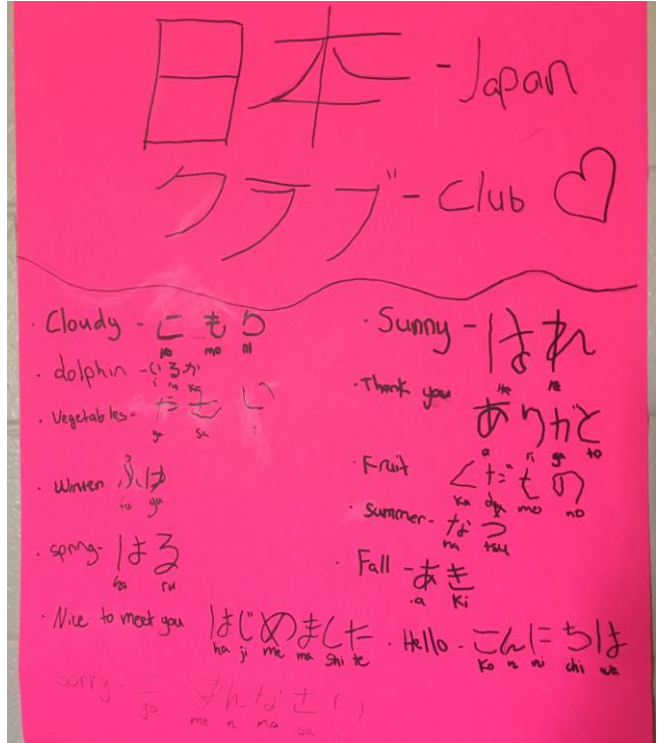 日本 - Japan
クラブ - Club
· Cloudy - こもり
mo
· dolphin - いるか
i ka
· Vegetables -
sa i
· Winter ふゆ
fu yu
· spring - はる
ha ru
· Nice to meet you はじめました
ha ji me ma shi te
sorry - ごめんなさい
go me n na sa i
· Sunny - はれ
re
· Thank you
ありがと
a ri ga to
· Fruit くだもの
ku da mo no
· Summer - なつ
na tsu
· Fall - あき
a ki
· Hello - こんにちは
ko n ni chi wa